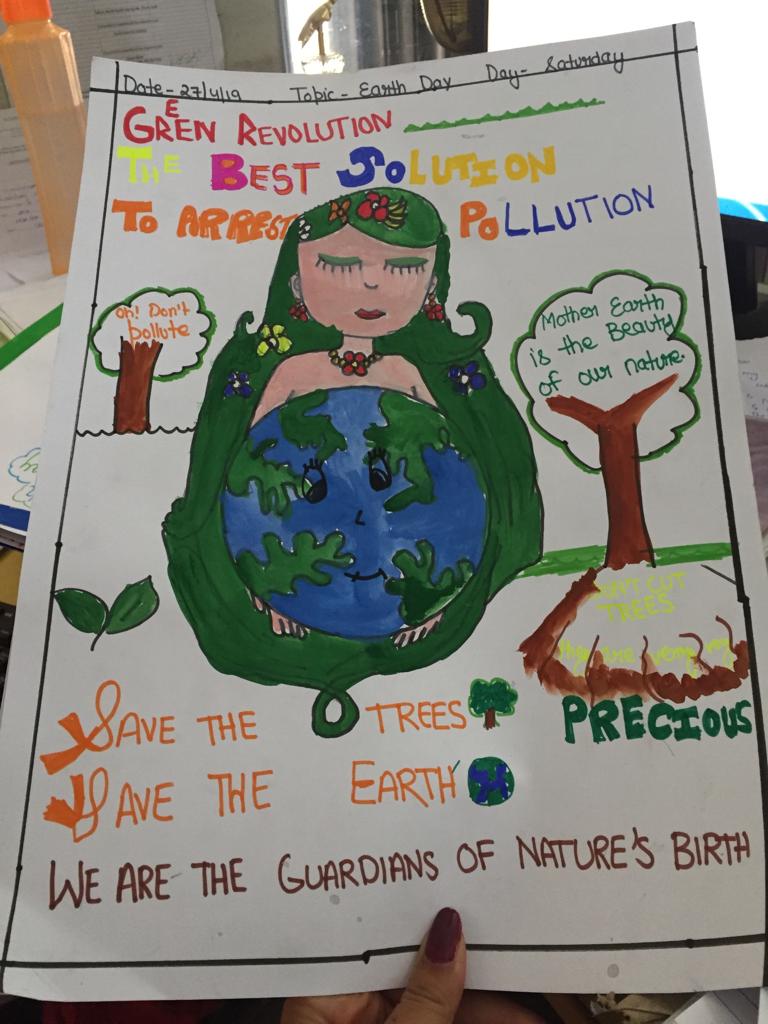 Date- 27/4/19 Topic- Earth Day Day- Saturday
GREEN REVOLUTION
THE BEST SOLUTION
TO ARREST POLLUTION
Oh! Don't
pollute
Mother Earth
is the Beauty
of our nature.
DON'T CUT
TREES
they are very
PRECIOUS
SAVE THE TREES
SAVE THE EARTH
WE ARE THE GUARDIANS OF NATURE'S BIRTH